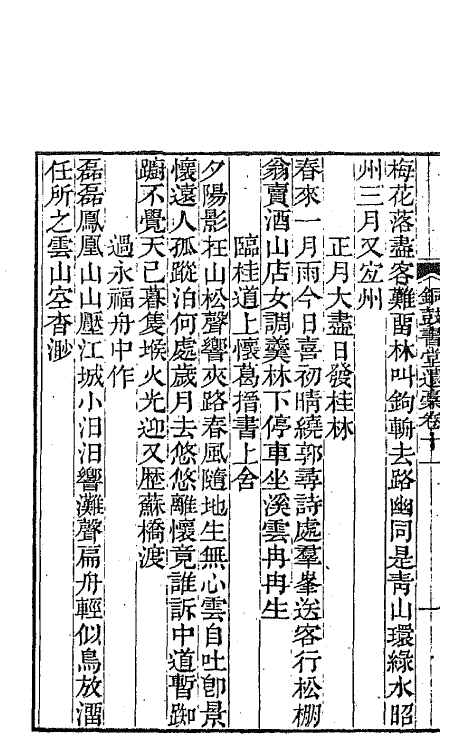 銅鼓書堂遺稾卷十一
梅花落盡客難畱林叫鉤輈去路幽同是靑山環綠水昭
州三月又宐州
正月大盡日發桂林
春來一月雨今日喜初晴繞郭尋詩處羣峯送客行松棚
翁賣酒山店女調羹林下停車坐溪雲冉冉生
臨桂道上懷葛搢書上舍
夕陽影在山松聲響夾路春風隨地生無心雲自吐卽景
懷遠人孤蹤泊何處歲月去悠悠離懷竟誰訴中道暫踟
躕不覺天已暮隻堠火光迎又歷蘇橋渡
過永福舟中作
磊磊鳳凰山山壓江城小汨汨響灘聲扁舟輕似鳥放溜
任所之雲山空杳渺